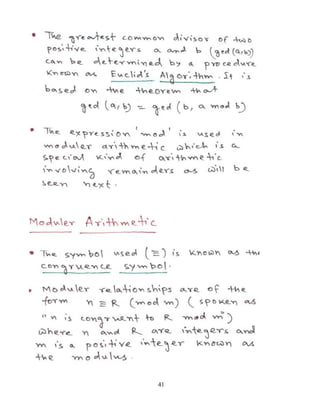 * The greatest common divisor of two
positive integers a and b (gcd(a,b))
can be determined by a procedure
known as Euclid's Algorithm. It is
based on the theorem that
gcd (a,b) = gcd (b, a mod b)
* The expression 'mod' is used in
moduler arithmetic which is a
special kind of arithmetic
involving remainders as will be
seen next.
Moduler Arithmetic
* The symbol used (≡) is known as the
congruence symbol.
* Moduler relationships are of the
form n ≡ R (mod m) (spoken as
"n is congruent to R mod m")
where n and R are integers and
m is a positive integer known as
the modulus.
41